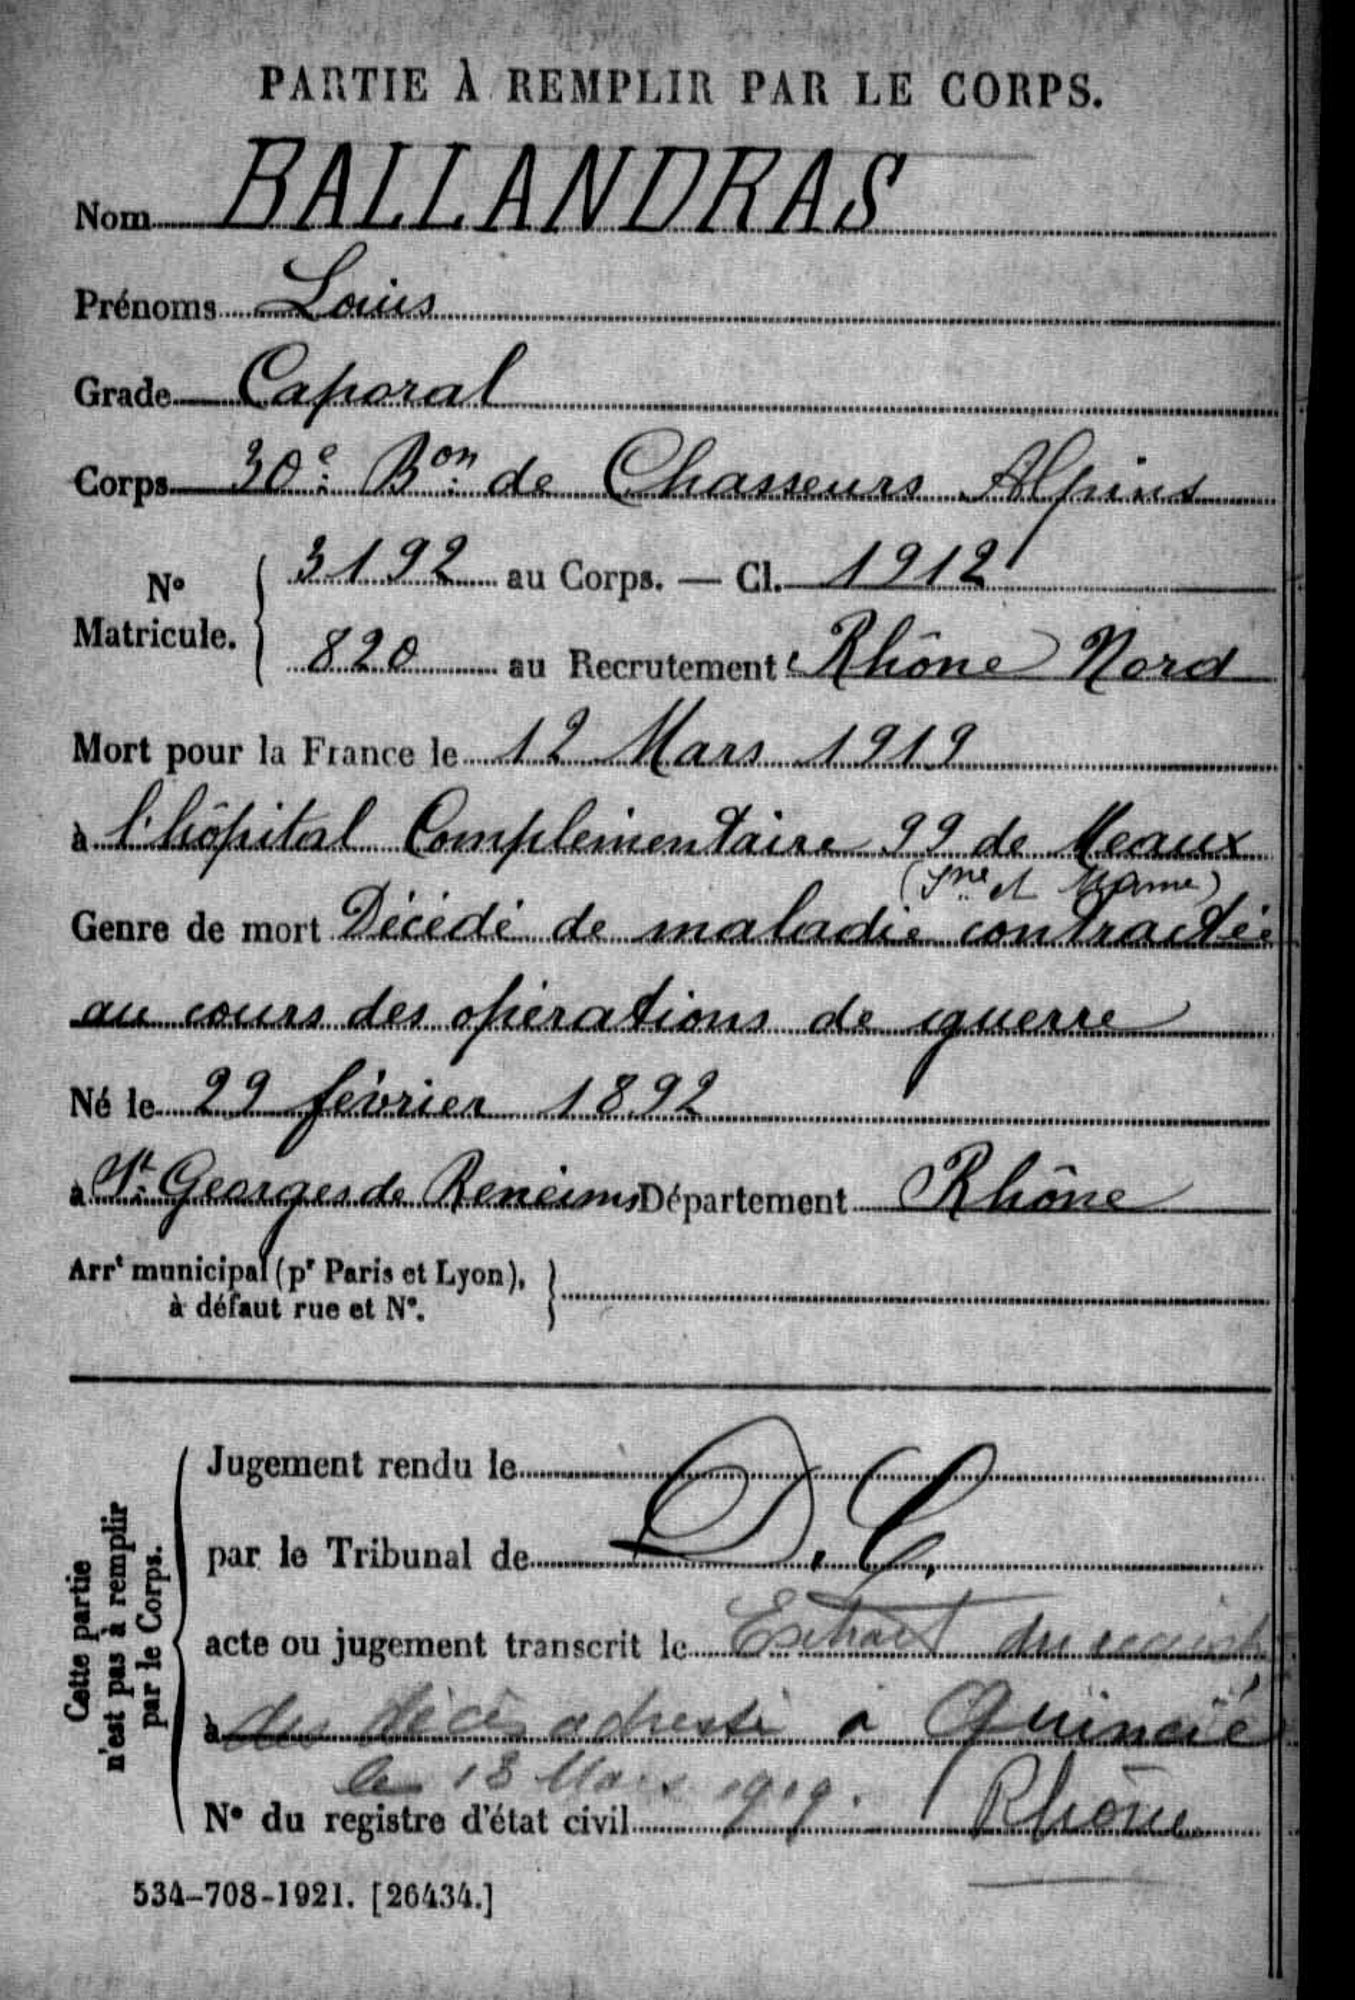 PARTIE À REMPLIR PAR LE CORPS.
Nom BALLANDRAS
Prénoms Louis
Grade Caporal
Corps 30e Bon de Chasseurs Alpins
No Matricule. { 3192 au Corps. — Cl. 1912
820 au Recrutement Rhône Nord
Mort pour la France le 12 Mars 1919
à l'hôpital Complémentaire 99 de Meaux
(Sne et Marne)
Genre de mort Décédé de maladie contractée
au cours des opérations de guerre
Né le 29 février 1892
à St Georges de Reneims Département Rhône
Arrt municipal (pr Paris et Lyon), }
à défaut rue et No.
Cette partie
n'est pas à remplir
par le Corps.
Jugement rendu le
par le Tribunal de D. C.
acte ou jugement transcrit le Extrait du
à des décès adressé à Quincié
le 13 Mars 1919. Rhône
No du registre d'état civil
534-708-1921. [26434.]